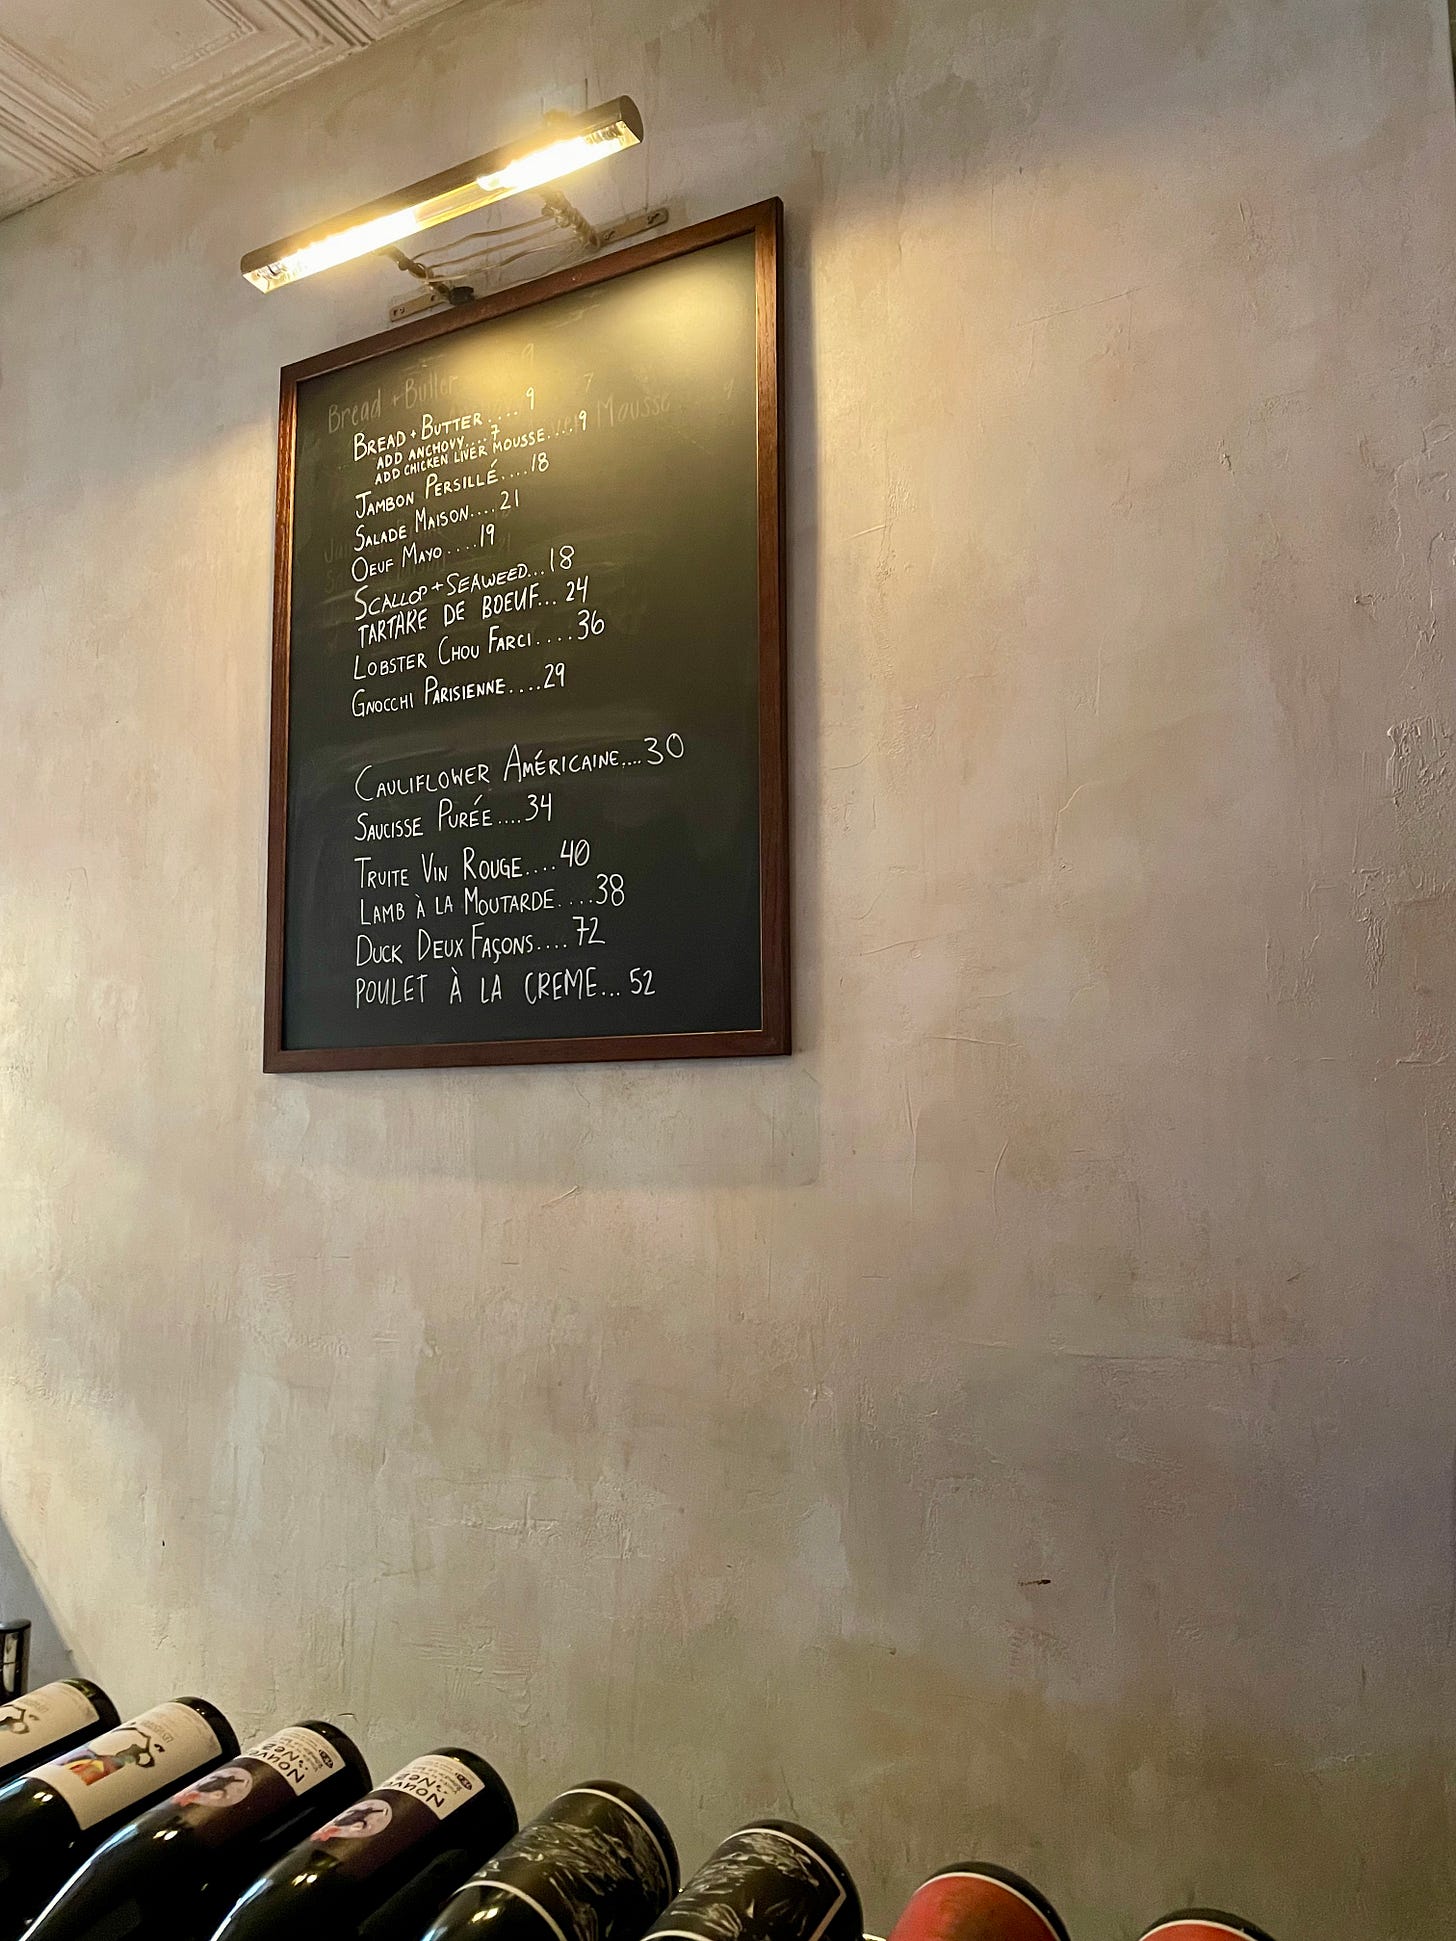 Bread + Butter 9
7
Mousse 9
BREAD + BUTTER.... 9
ADD ANCHOVY....7
ADD CHICKEN LIVER MOUSSE....9
JAMBON PERSILLÉ....18
SALADE MAISON....21
OEUF MAYO....19
SCALLOP + SEAWEED...18
TARTARE DE BOEUF... 24
LOBSTER CHOU FARCI....36
GNOCCHI PARISIENNE....29
CAULIFLOWER AMÉRICAINE....30
SAUCISSE PURÉE....34
TRUITE VIN ROUGE....40
LAMB À LA MOUTARDE....38
DUCK DEUX FAÇONS....72
POULET À LA CREME... 52